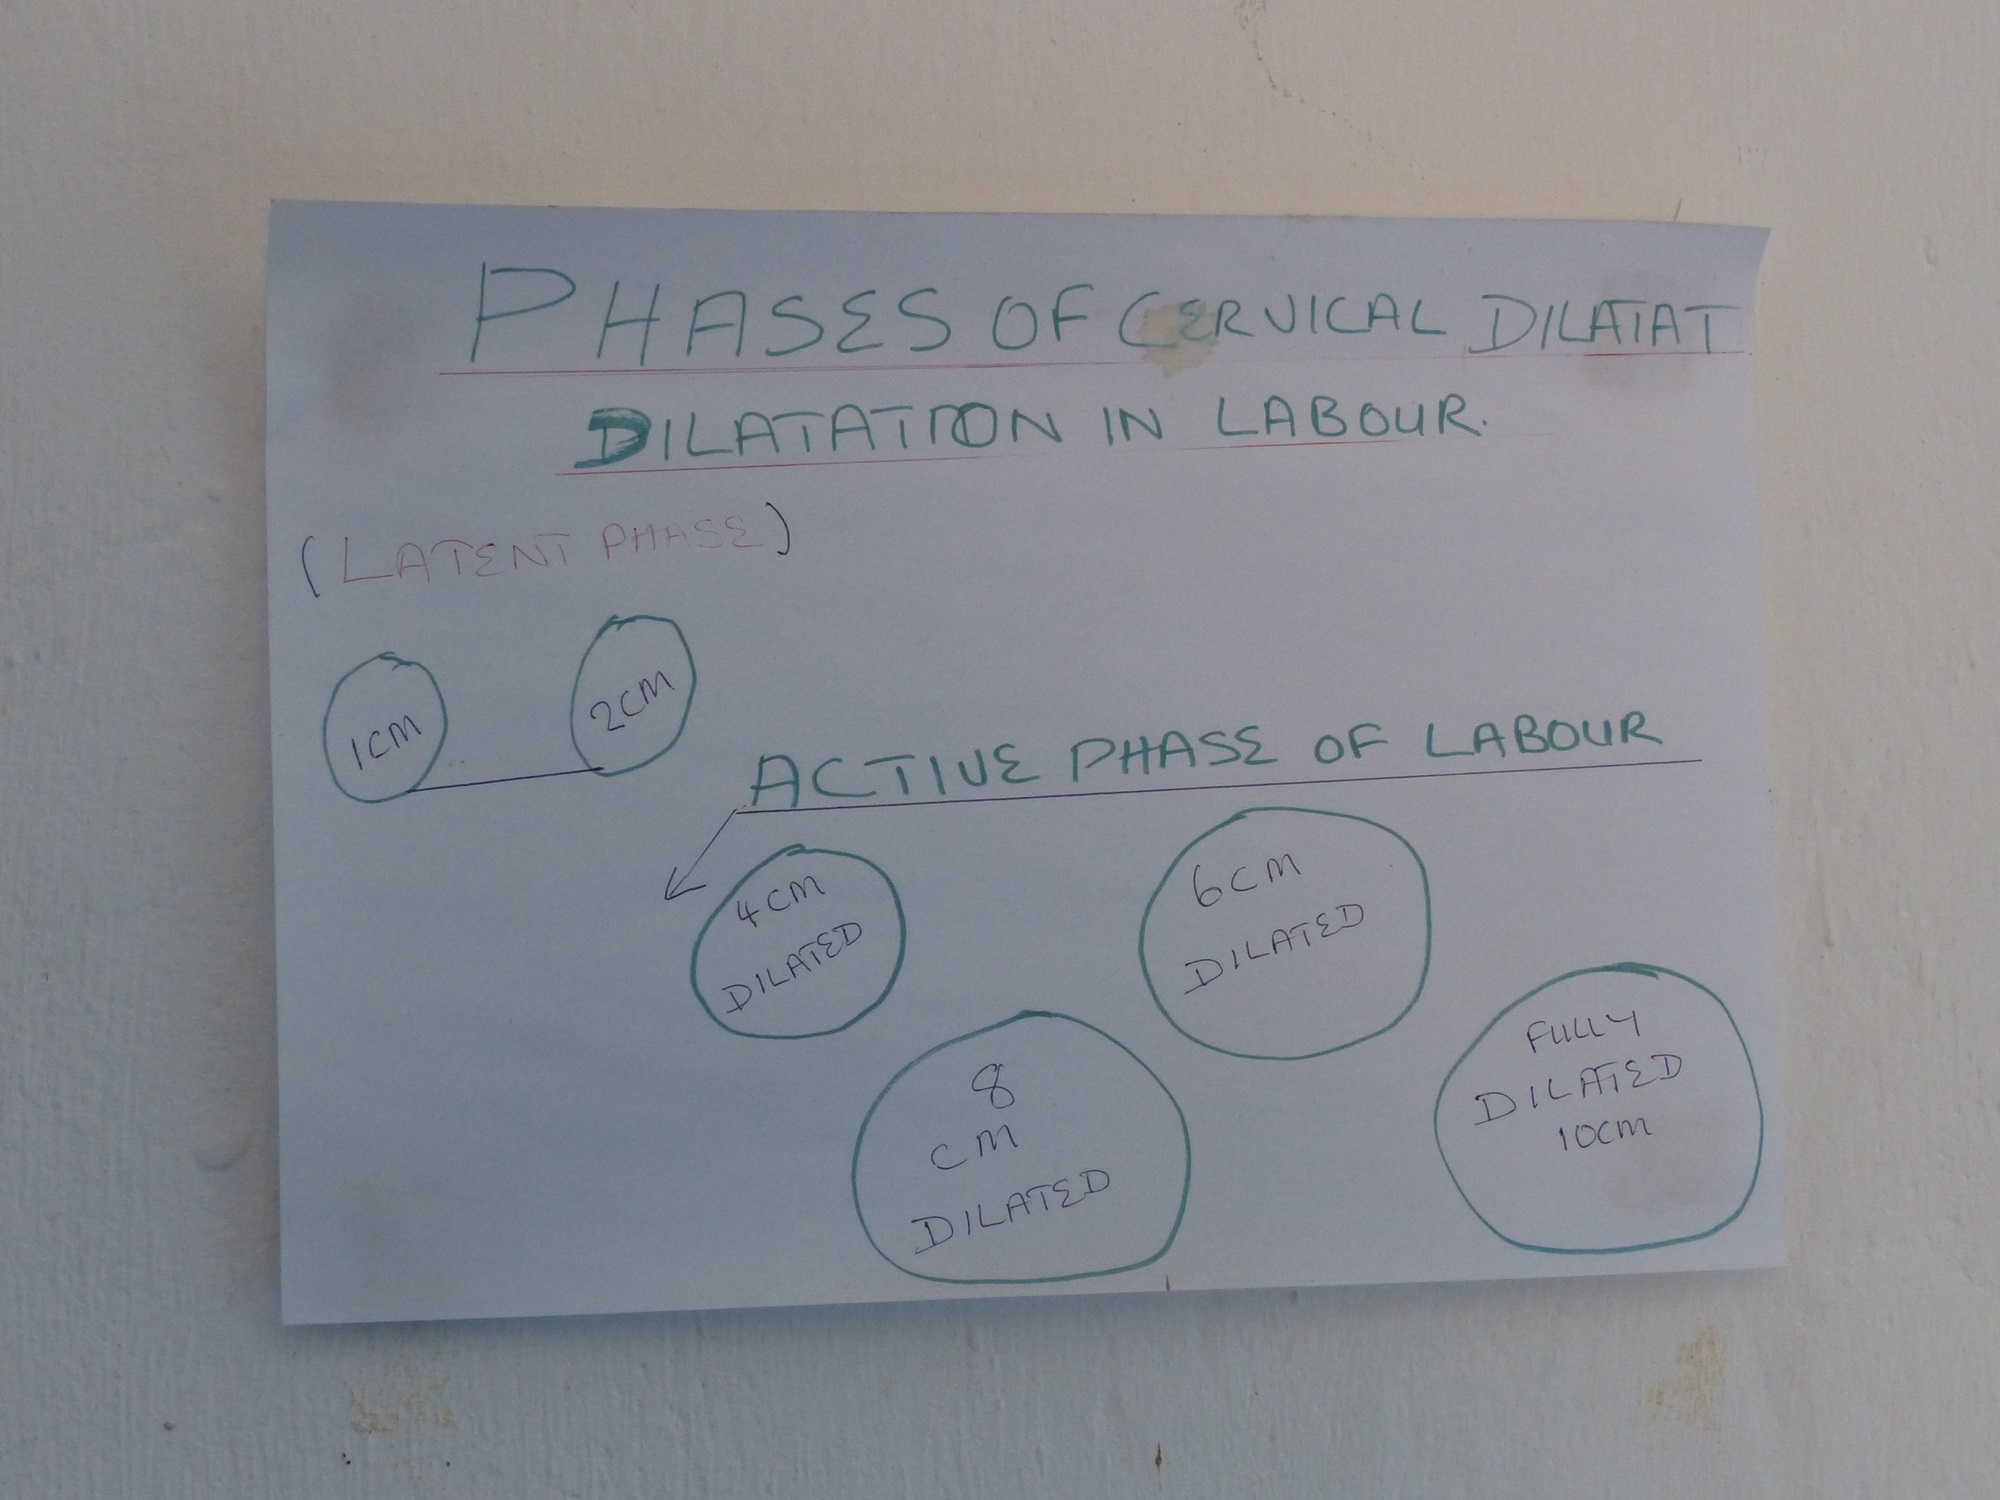 PHASES OF CERVICAL DILATAT
DILATATION IN LABOUR.
(LATENT PHASE)
1CM
2CM
ACTIVE PHASE OF LABOUR
4CM
DILATED
6CM
DILATED
8
CM
DILATED
FULLY
DILATED
10CM